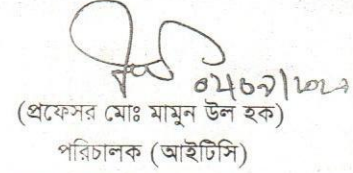 (প্রফেসর মোঃ মামুন উল হক)
পরিচালক (আইটিসি)